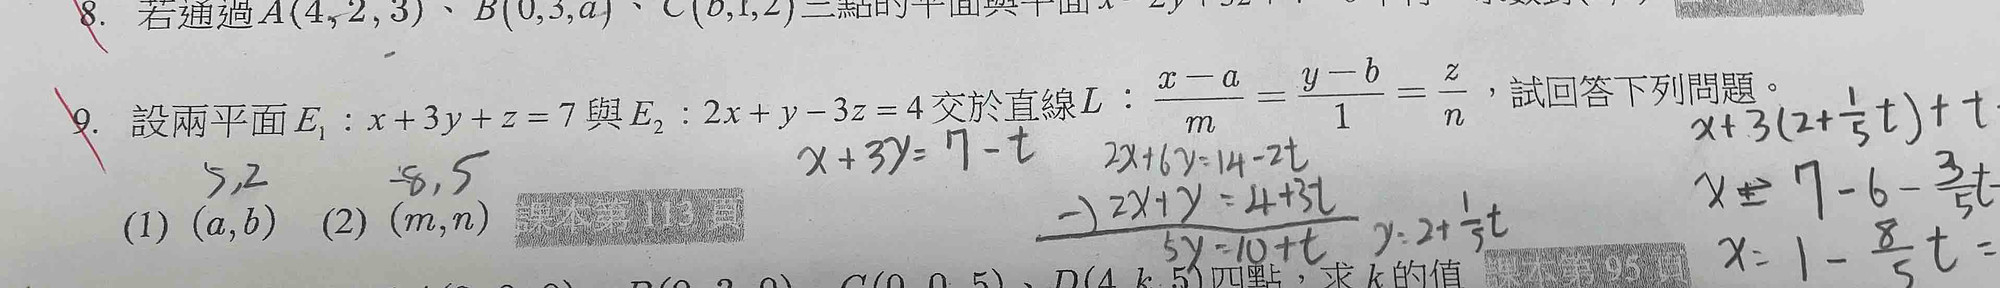 8. 若通過A(4,-2,3)、B(0,3,a)、C(b,1,2)三點的平面與平面
9. 設兩平面E₁:x+3y+z=7與E₂:2x+y-3z=4交於直線L:(x-a)/m=(y-b)/1=z/n,試回答下列問題。
x+3(2+1/5t)+t
x+3y=7-t
2x+6y=14-2t
-)2x+y=4+3t
5y=10+t y=2+1/5t
x=7-6-3/5t-
x=1-8/5t=
5,2 -8,5
(1) (a,b) (2) (m,n) 課本第 113 頁
C(0,0,5)、D(4,k,5)四點,求k的值 課本第 95 頁